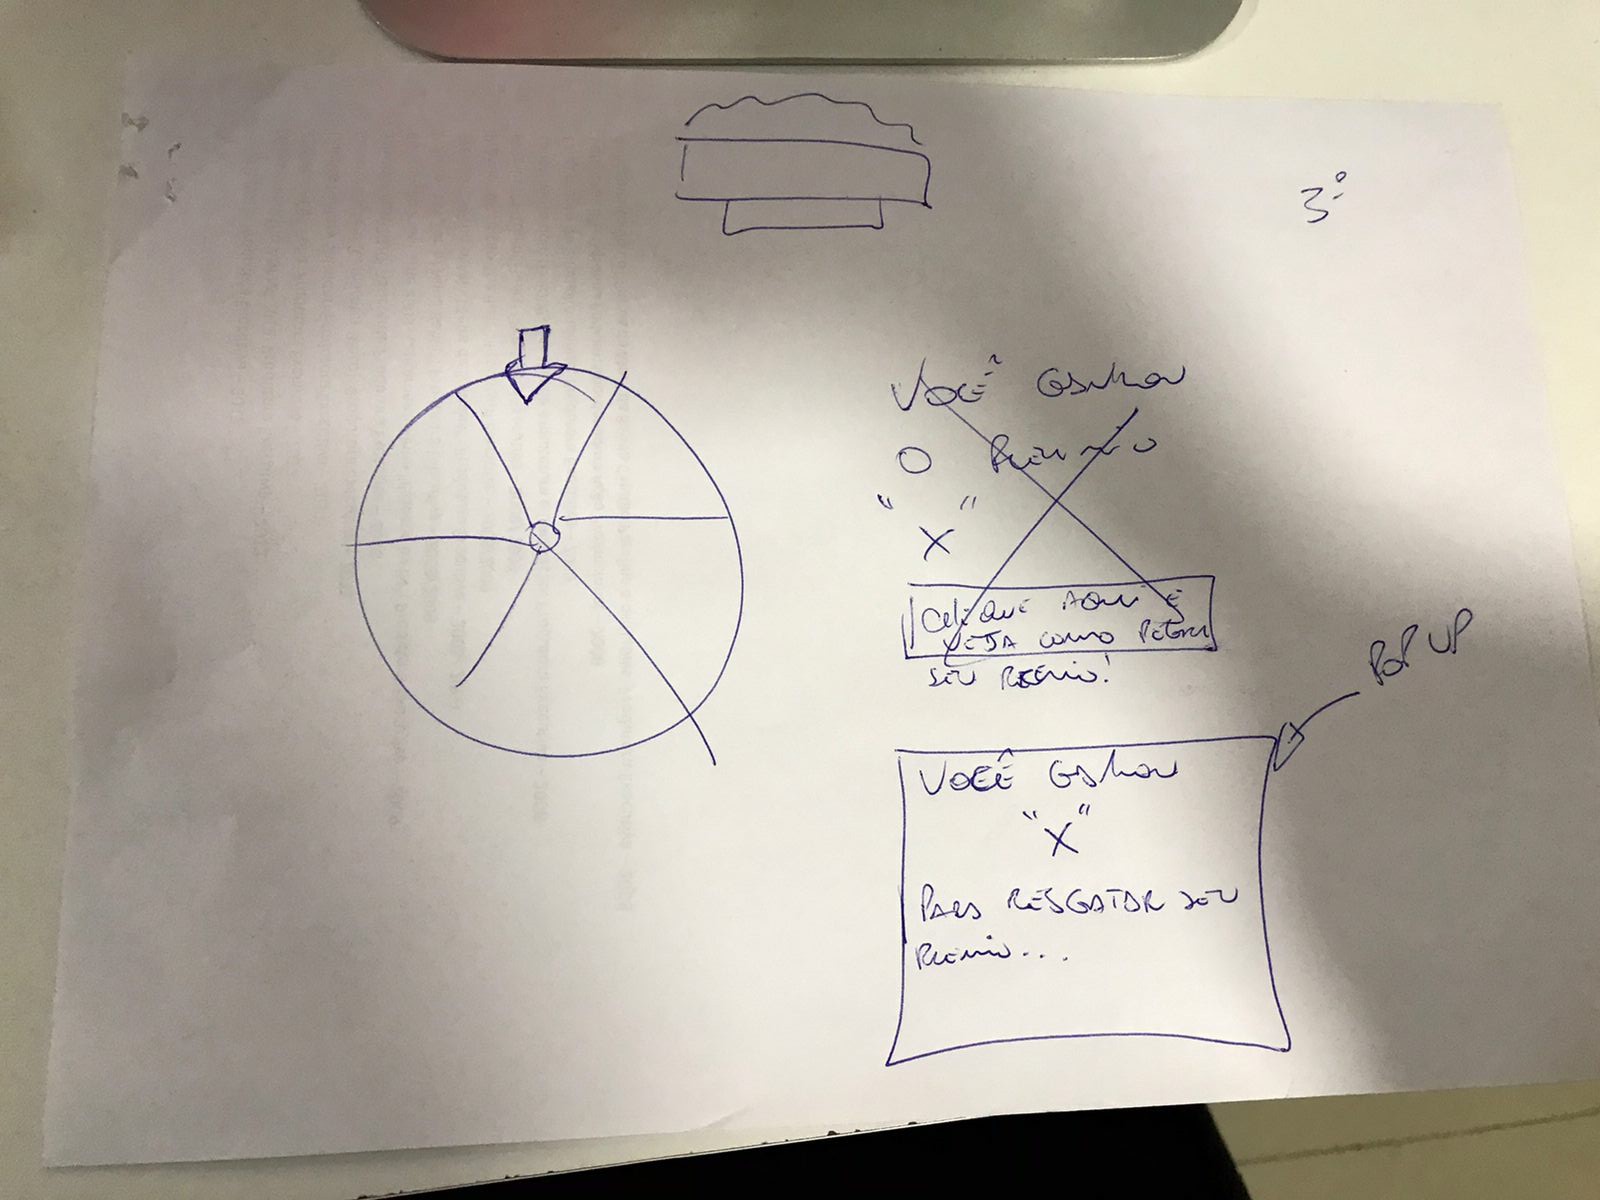 3º
VOCÊ GANHOU
O PREMIO
"X"
CLIQUE AQUI E
VEJA COMO RETIRAR
SEU PREMIO!
POP UP
VOCÊ GANHOU
"X"
PARA RESGATAR SEU
PREMIO...